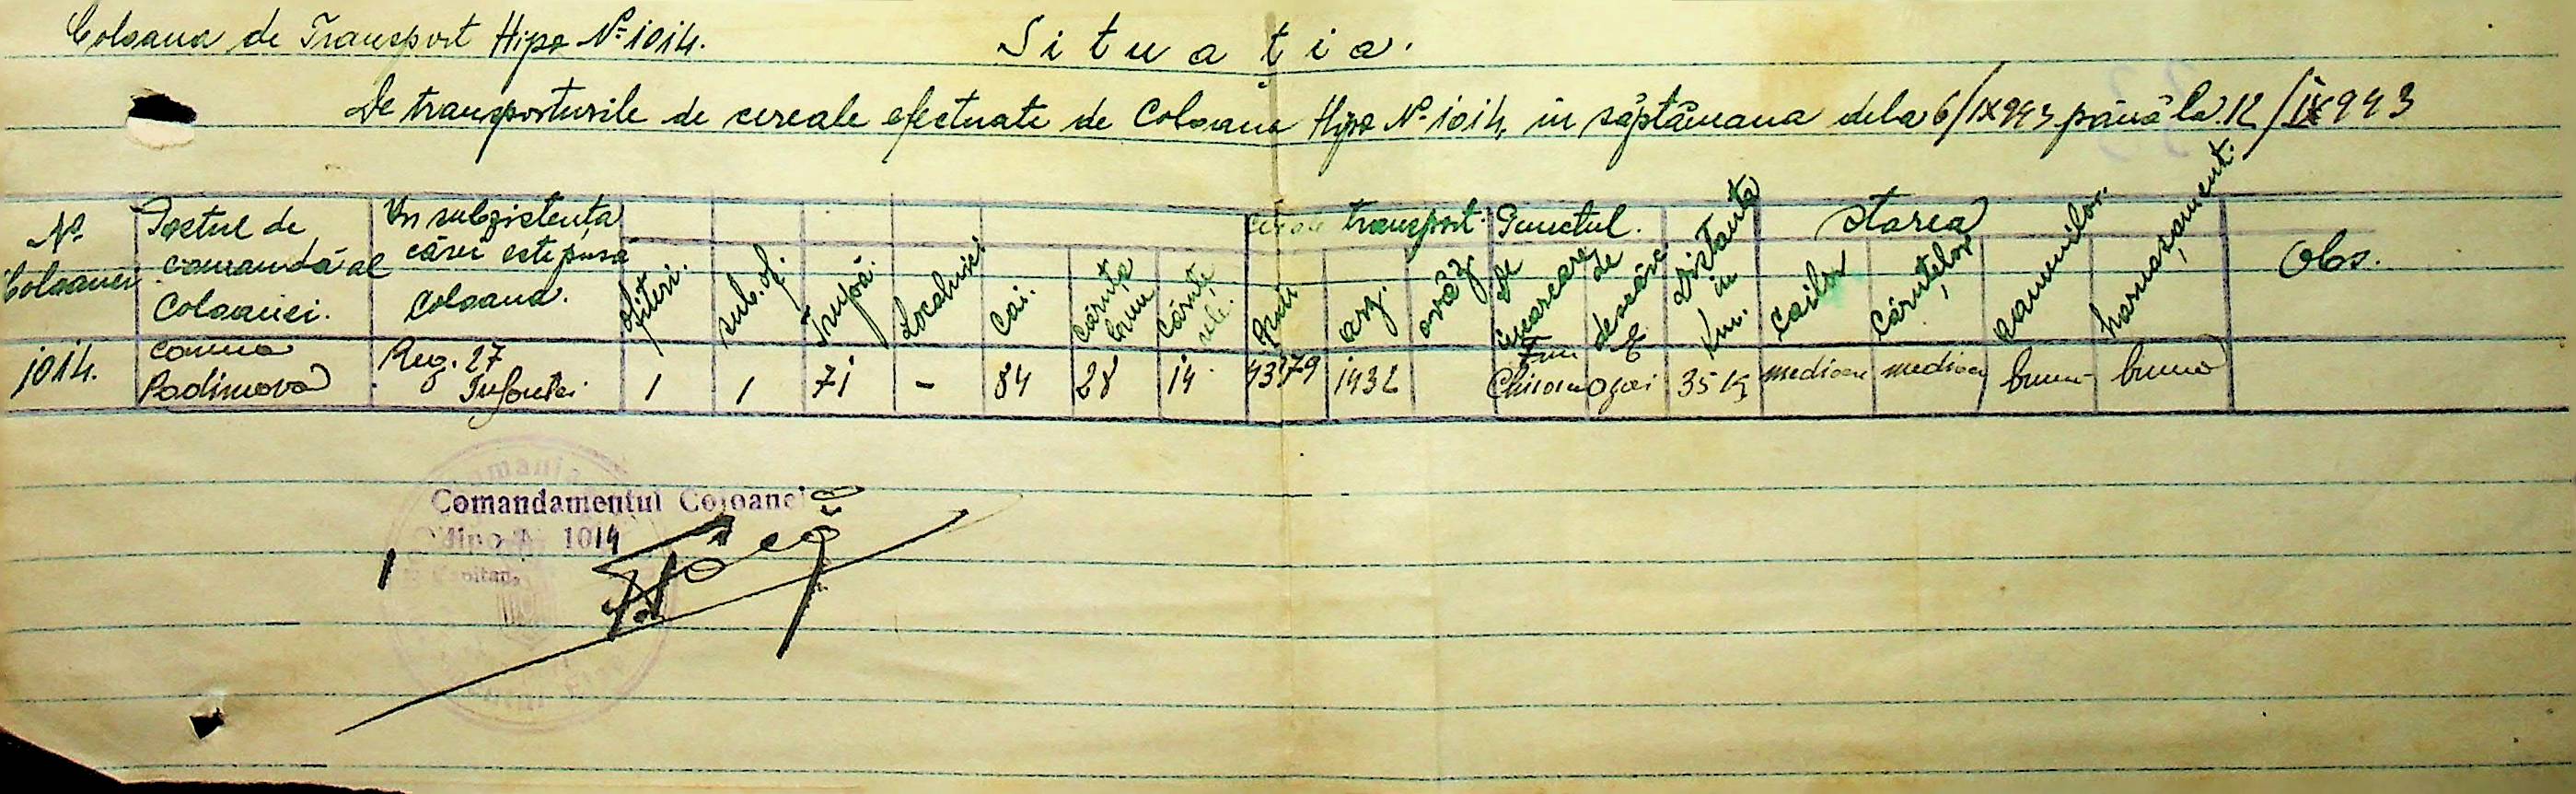 Coloana de Transport Hipo Nº 1014.
Situația.
De transporturile de cereale efectuate de Coloana Hipo Nº 1014, în săptămana dela 6/IX943 până la 12/IX943
Nº Coloanei
Postul de comandă al Coloanei.
În subzistența cărei este pusă Coloana.
ofițeri.
sub.of.
Trupă.
Localnici
Cai.
căruțe bune
căruțe rele.
transport.
grâu
orz.
ovăz
Punctul.
de incarcare
de descărc.
Distanta in Km.
Starea
Cailor
Căruțelor
oamenilor.
harnașament.
Obs.
1014.
Comuna
Reg. 27
Infanterie
1
1
71
-
84
28
14
1432
35 Kg
mediocre
mediocre
bună
bună
Comandamentul Coloanei
Hipo Nº 1014
Capitan